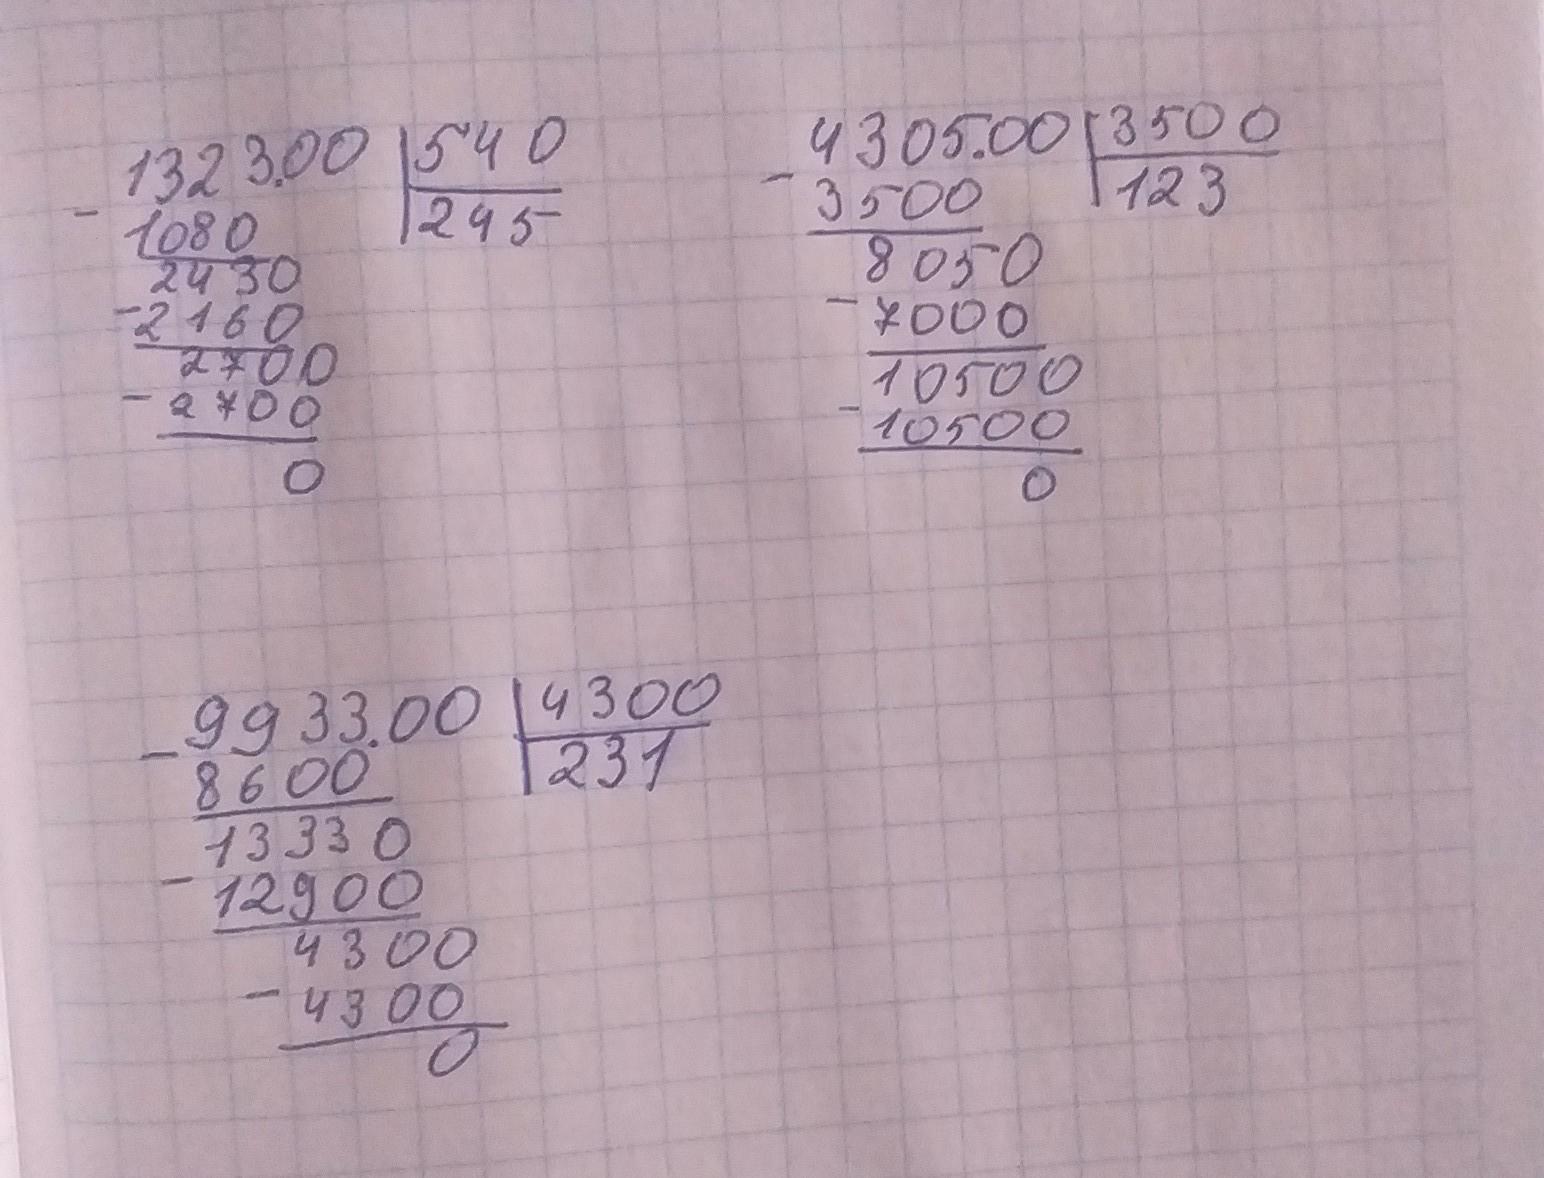 1323.00 540
- 1080 245
2430
- 2160
2700
- 2700
0
4305.00 3500
- 3500 123
8050
- 7000
10500
- 10500
0
9933.00 4300
- 8600 231
13330
- 12900
4300
- 4300
0